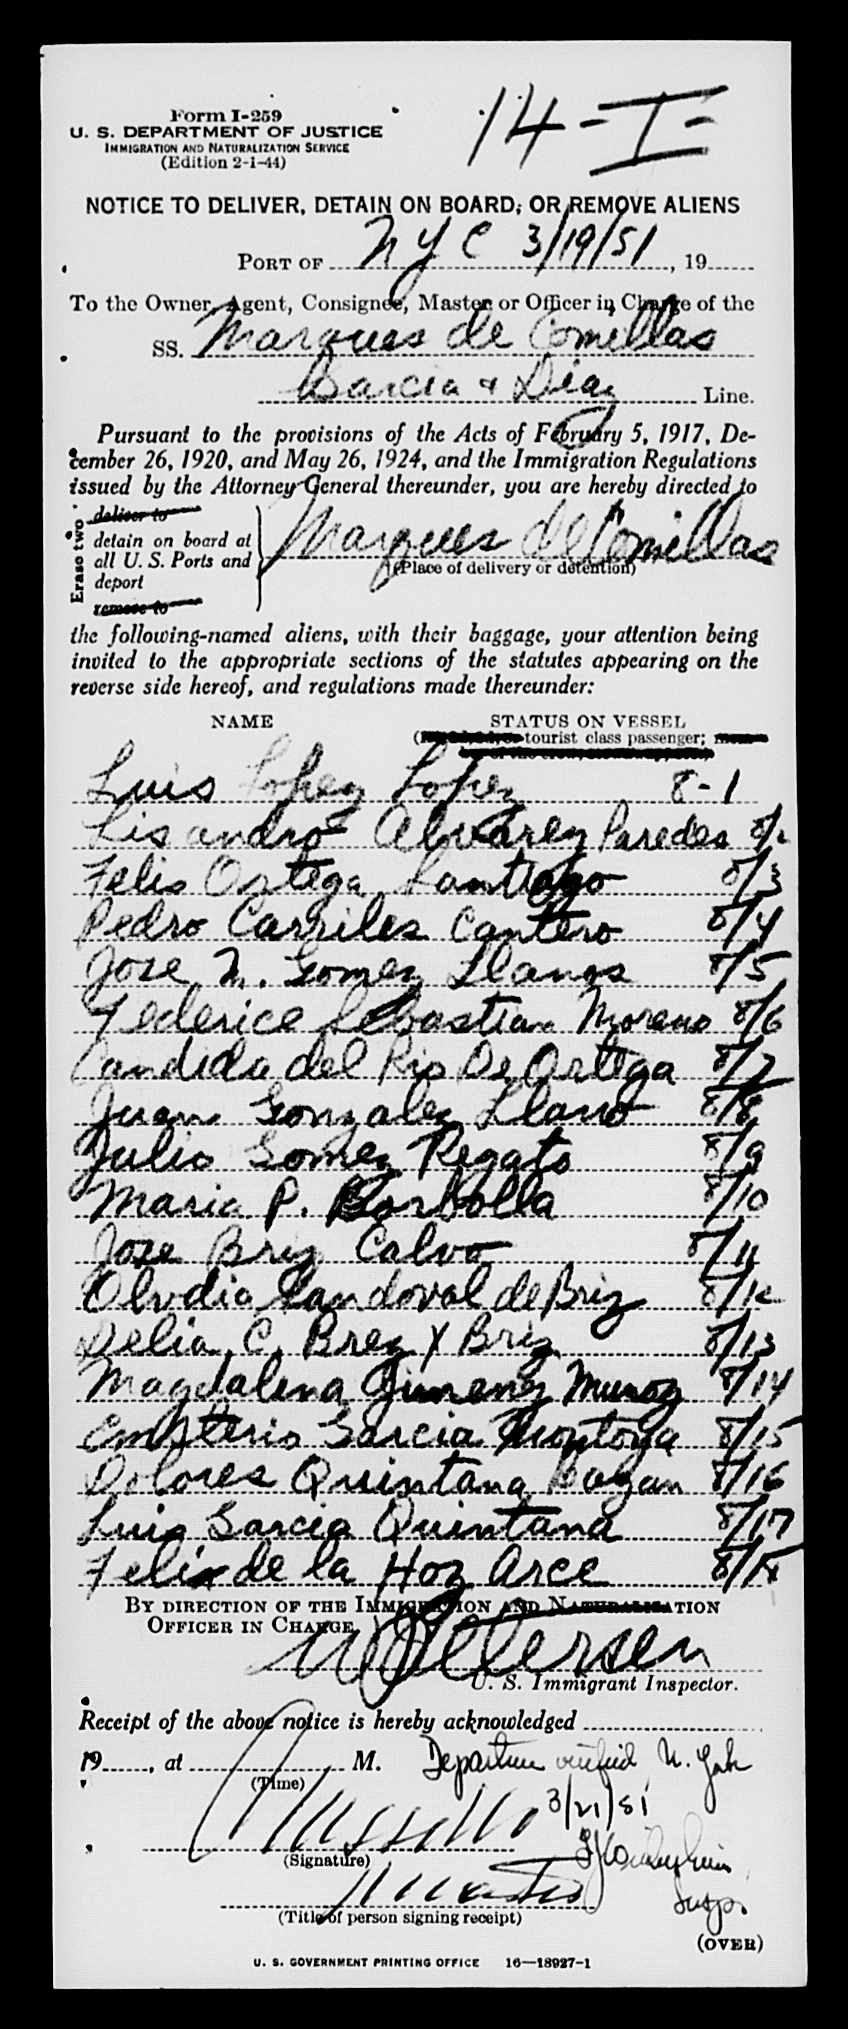 Form I-259
14-I-
U. S. DEPARTMENT OF JUSTICE
IMMIGRATION AND NATURALIZATION SERVICE
(Edition 2-1-44)
NOTICE TO DELIVER, DETAIN ON BOARD, OR REMOVE ALIENS
PORT OF NYC 3/19/51, 19
To the Owner, Agent, Consignee, Master or Officer in Charge of the
SS. Marques de Comillas
Garcia & Diaz Line.
Pursuant to the provisions of the Acts of February 5, 1917, De-
cember 26, 1920, and May 26, 1924, and the Immigration Regulations
issued by the Attorney General thereunder, you are hereby directed to
Erase two
deliver to
detain on board at
all U. S. Ports and
deport
remove to
Marques de Comillas
(Place of delivery or detention)
the following-named aliens, with their baggage, your attention being
invited to the appropriate sections of the statutes appearing on the
reverse side hereof, and regulations made thereunder:
NAME STATUS ON VESSEL
tourist class passenger;
Luis Lopez Lopez 8-1
Lisandro Alvarez Paredes 8/2
Felis Ortega Santiago 8/3
Pedro Carriles Cantero 8/4
Jose N. Gomez Llanos 8/5
Federice Sebastian Moreno 8/6
Candida del Rio De Ortega 8/7
Juan Gonzalez Llano 8/8
Julio Gomez Regato 8/9
Maria P. Borbolla 8/10
Jose Briz Calvo 8/11
Olvdia Sandoval de Briz 8/12
Delia C. Brez y Briz 8/13
Magdalena Jimenez Munoz 8/14
Emeterio Garcia Montoya 8/15
Dolores Quintana Bazan 8/16
Luis Garcia Quintana 8/17
Felix de la Hoz Arce 8/18
BY DIRECTION OF THE IMMIGRATION AND NATURALIZATION
OFFICER IN CHARGE,
Petersen
U. S. Immigrant Inspector.
Receipt of the above notice is hereby acknowledged
19, at M. Departure verified N. York
(Time)
3/21/51
(Signature)
Insp.
(Title of person signing receipt)
(OVER)
U. S. GOVERNMENT PRINTING OFFICE 16—18927-1